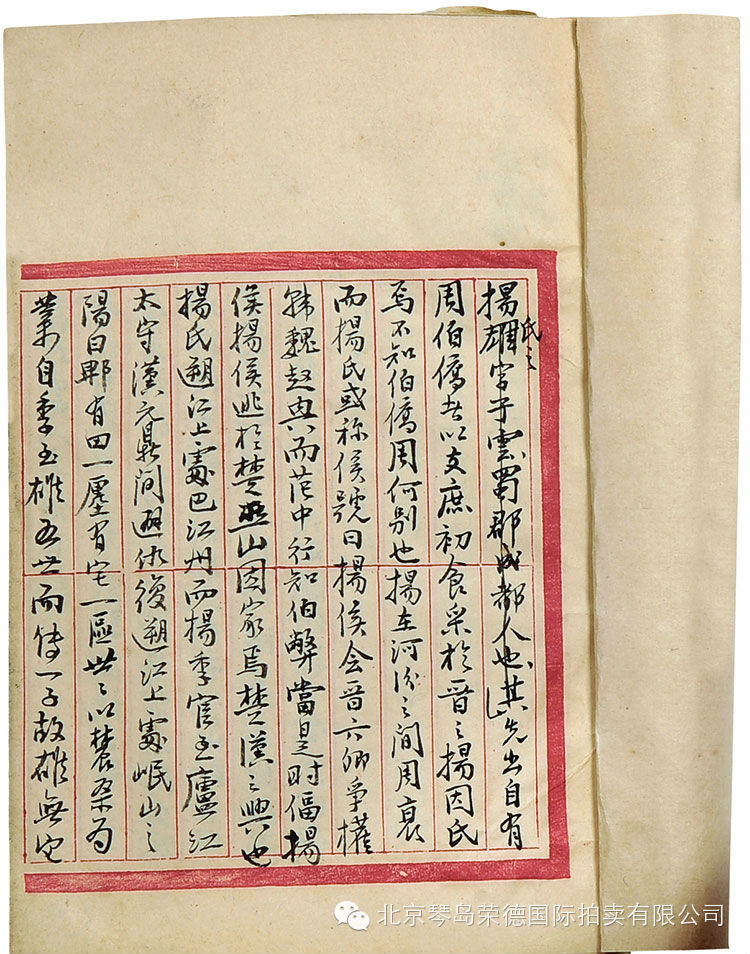 揚雄字子雲蜀郡成都人也其先出自有
氏之
周伯僑者以支庶初食采於晉之揚因氏
焉不知伯僑周何別也揚在河汾之間周衰
而揚氏或称侯號曰揚侯会晉六卿爭權
韩魏趙興而范中行知伯弊當是时偪揚
侯揚侯逃於楚巫山因家焉楚漢之興也
揚氏遡江上處巴江州而揚季官至廬江
太守漢元鼎间避仇復遡江上處岷山之
陽曰郫有田一廛有宅一區世々以農桑为
業自季至雄五世而传一子故雄無它
北京琴岛荣德国际拍卖有限公司